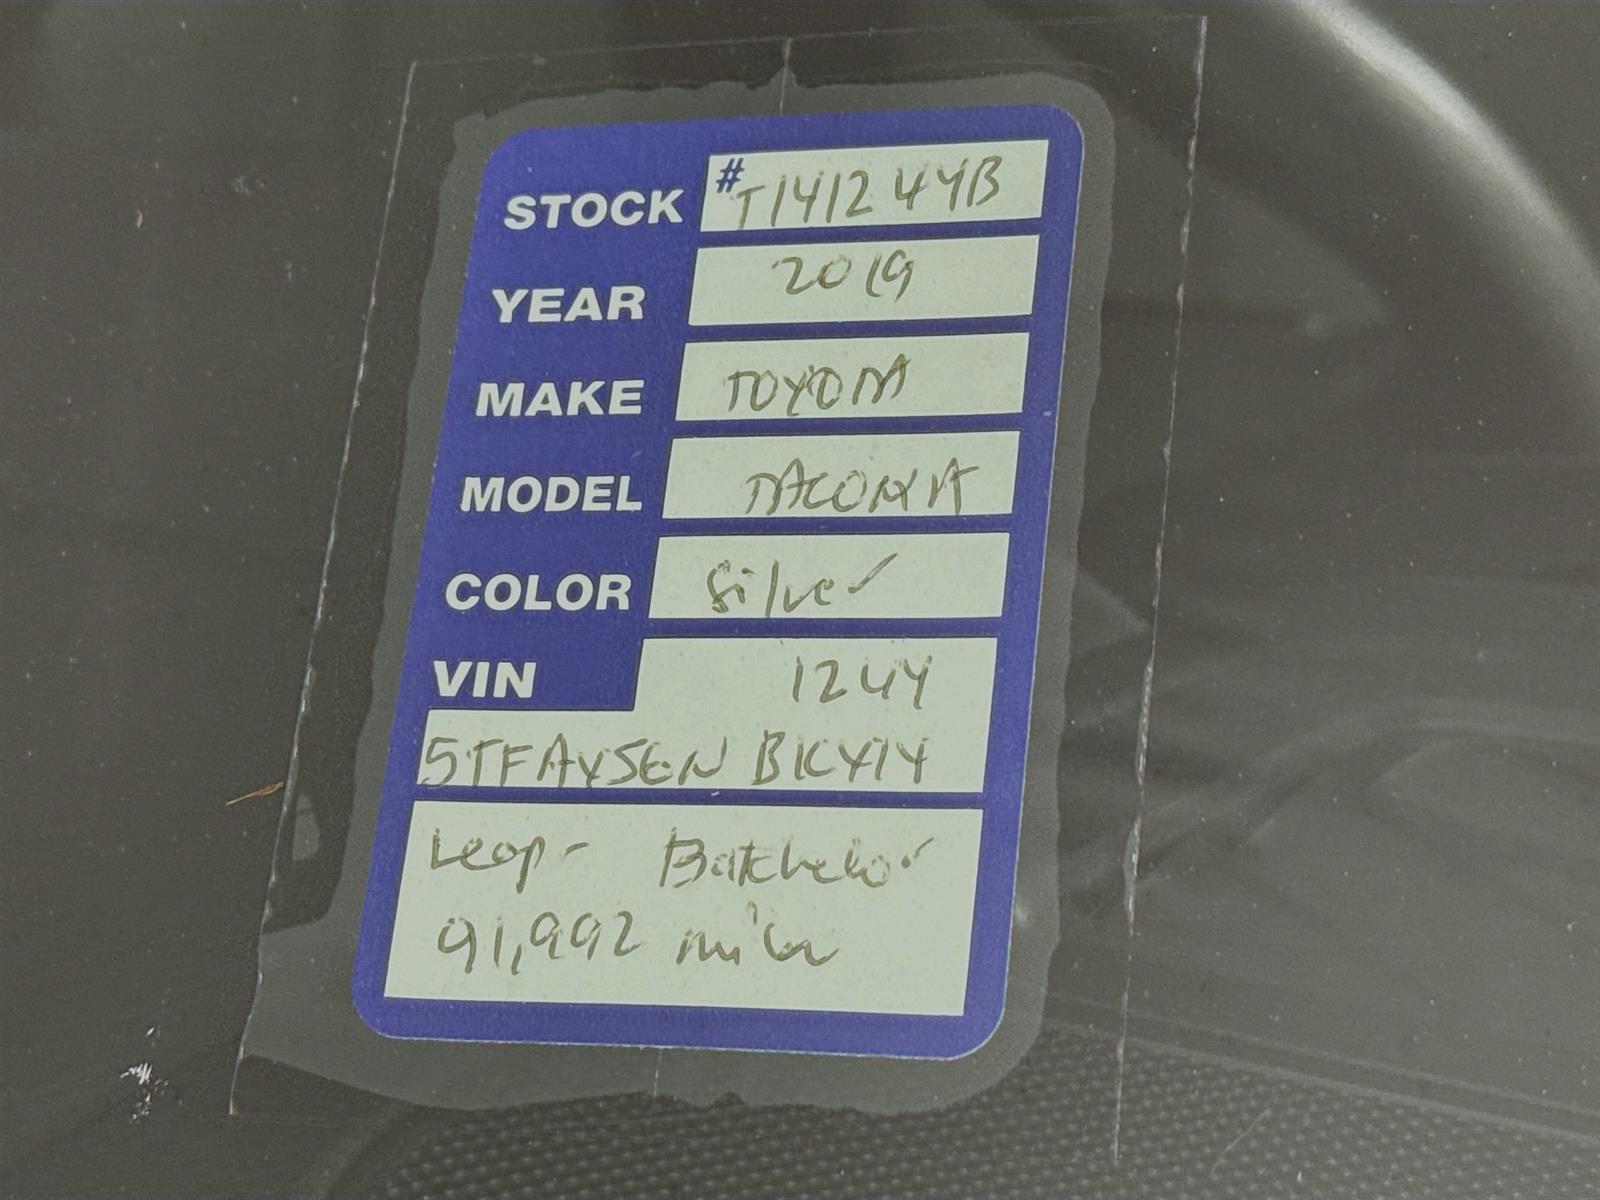 STOCK #T141244B
YEAR 2019
MAKE TOYOTA
MODEL TACOMA
COLOR Silver
VIN 1244
5TFAY5EN BKX14
Batchelor
91,992 miles